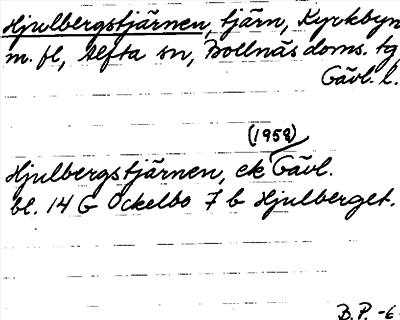 Hjulbergstjärnen, tjärn, Kyrkbyn
m. fl, Alfta sn, Bollnäs doms. tg
Gävl. l.
(1958)
Hjulbergstjärnen, ek Gävl.
bl. 14 G Ockelbo 7 b Hjulberget.
B.P. -6